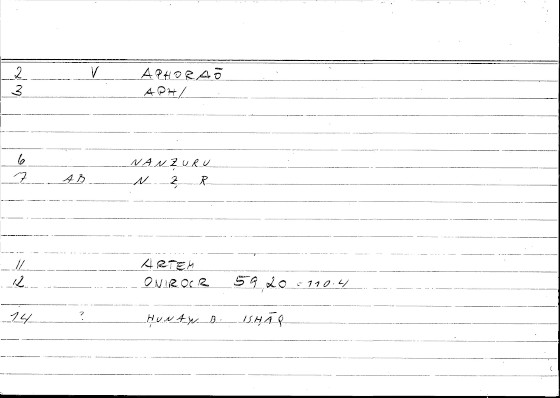 2 V APHORAŌ
3 APH/
6 NANẒURU
7 AB N Ẓ R
11 ARTEM
12 ONIROCR 59,20 = 110.4
14 ? ḤUNAYN B. ISḤĀQ